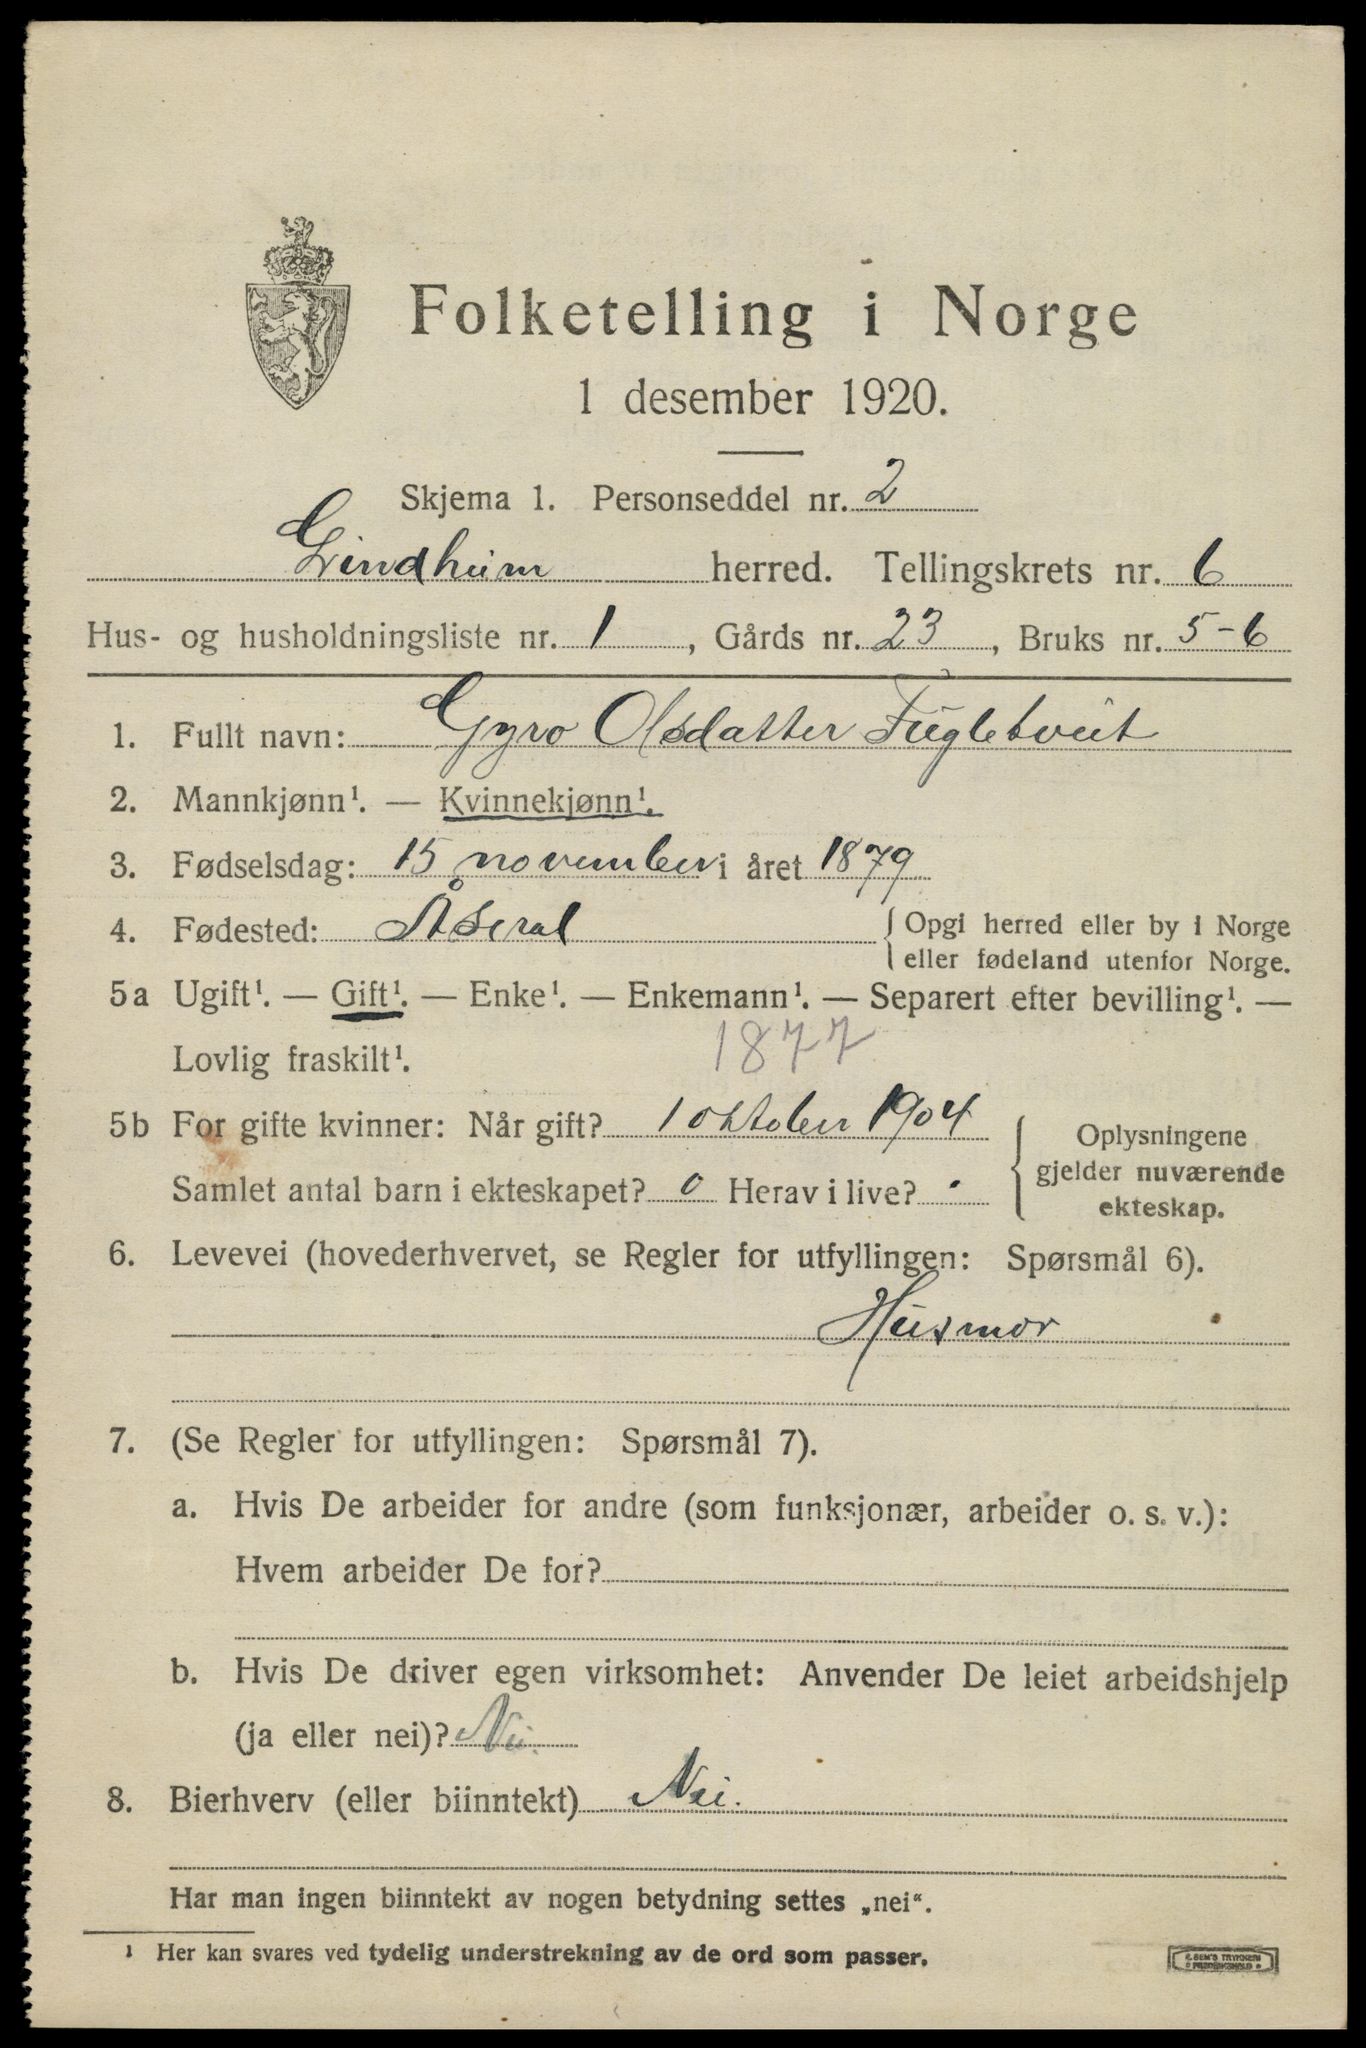 Folketelling i Norge
1 desember 1920.
Skjema 1. Personseddel nr. 2
Grindheim herred. Tellingskrets nr. 6
Hus- og husholdningsliste nr. 1, Gårds nr. 23, Bruks nr. 5-6
1. Fullt navn: Gyro Olsdatter Fugletveit
2. Mannkjønn¹. — Kvinnekjønn¹.
3. Fødselsdag: 15 november i året 1879
4. Fødested: Åseral { Opgi herred eller by i Norge
eller fødeland utenfor Norge.
5a Ugift¹. — Gift¹. — Enke¹. — Enkemann¹. — Separert efter bevilling¹. —
Lovlig fraskilt¹. 1877
5b For gifte kvinner: Når gift? 1 oktober 1904
Samlet antal barn i ekteskapet? 0 Herav i live? ·
Oplysningene
gjelder nuværende
ekteskap.
6. Levevei (hovederhvervet, se Regler for utfyllingen: Spørsmål 6).
Husmor
7. (Se Regler for utfyllingen: Spørsmål 7).
a. Hvis De arbeider for andre (som funksjonær, arbeider o. s. v.):
Hvem arbeider De for?
b. Hvis De driver egen virksomhet: Anvender De leiet arbeidshjelp
(ja eller nei)? Nei.
8. Bierhverv (eller biinntekt) Nei.
Har man ingen biinntekt av nogen betydning settes „nei“.
¹ Her kan svares ved tydelig understrekning av de ord som passer.